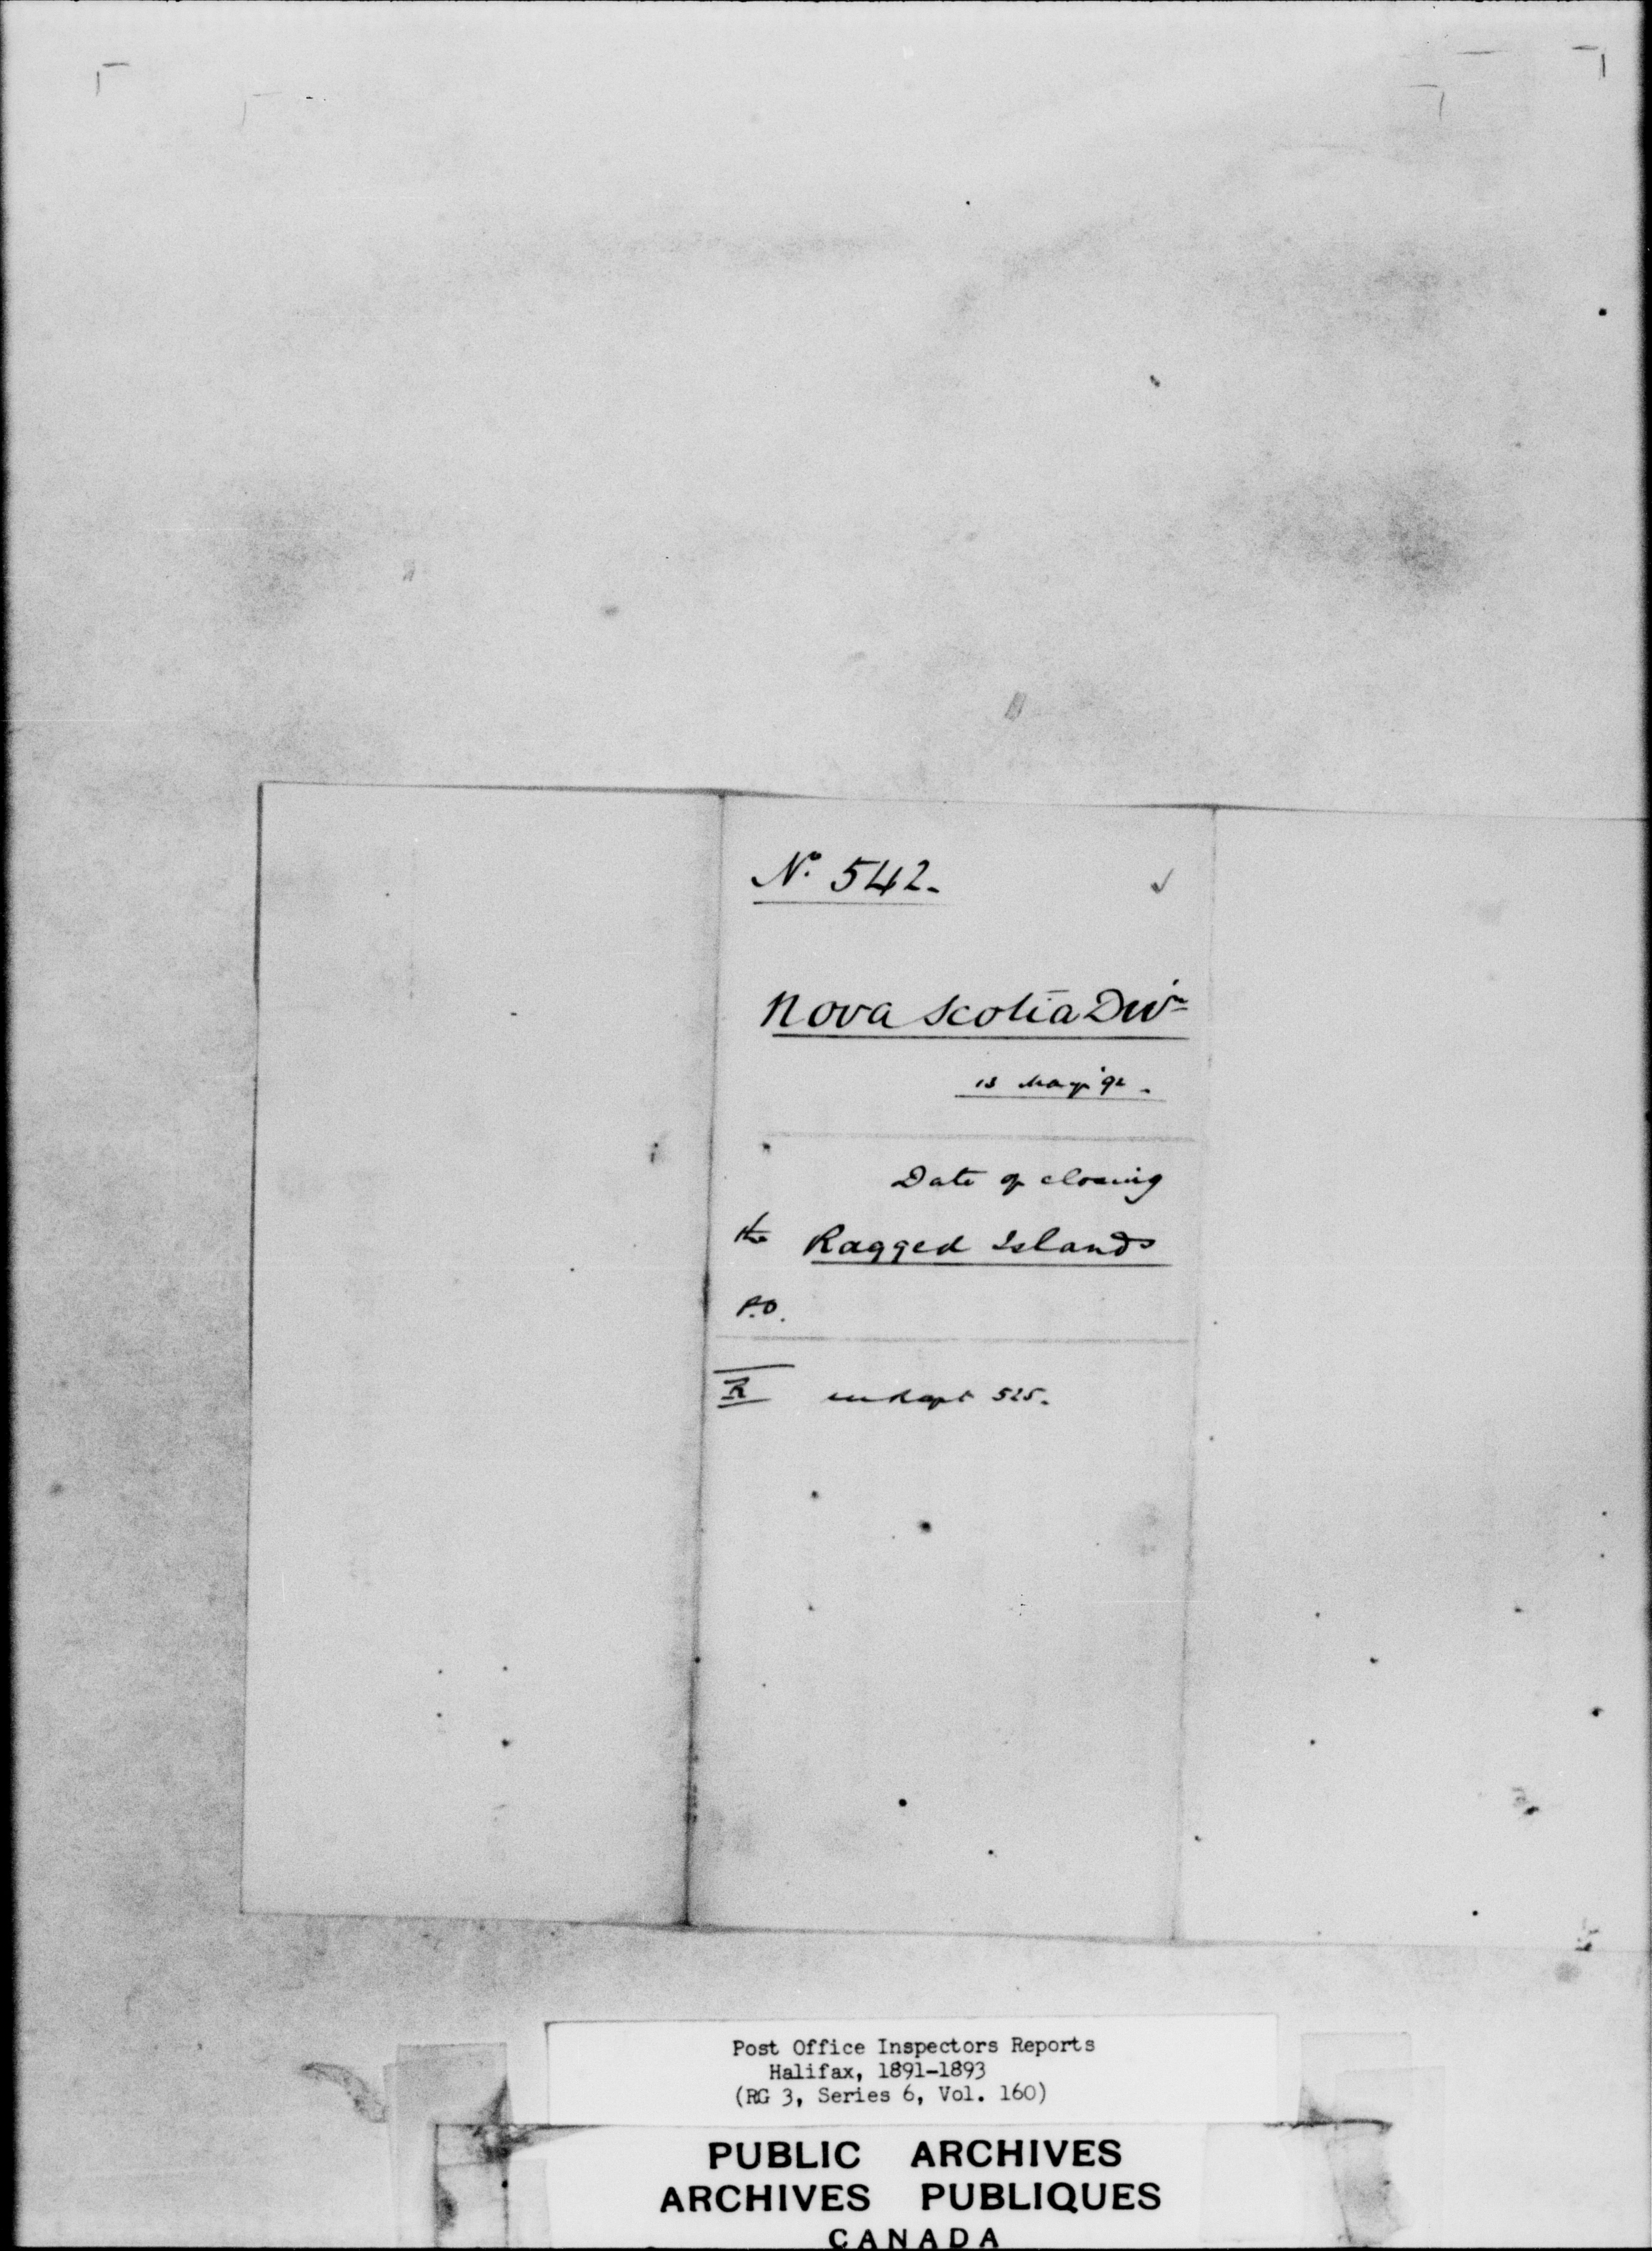 No. 542.
Nova Scotia Divn
13 May '92.
Date of closing
the Ragged Islands
P.O.
R in Rept 525.
Post Office Inspectors Reports
Halifax, 1891-1893
(RG 3, Series 6, Vol. 160)
PUBLIC ARCHIVES
ARCHIVES PUBLIQUES
CANADA